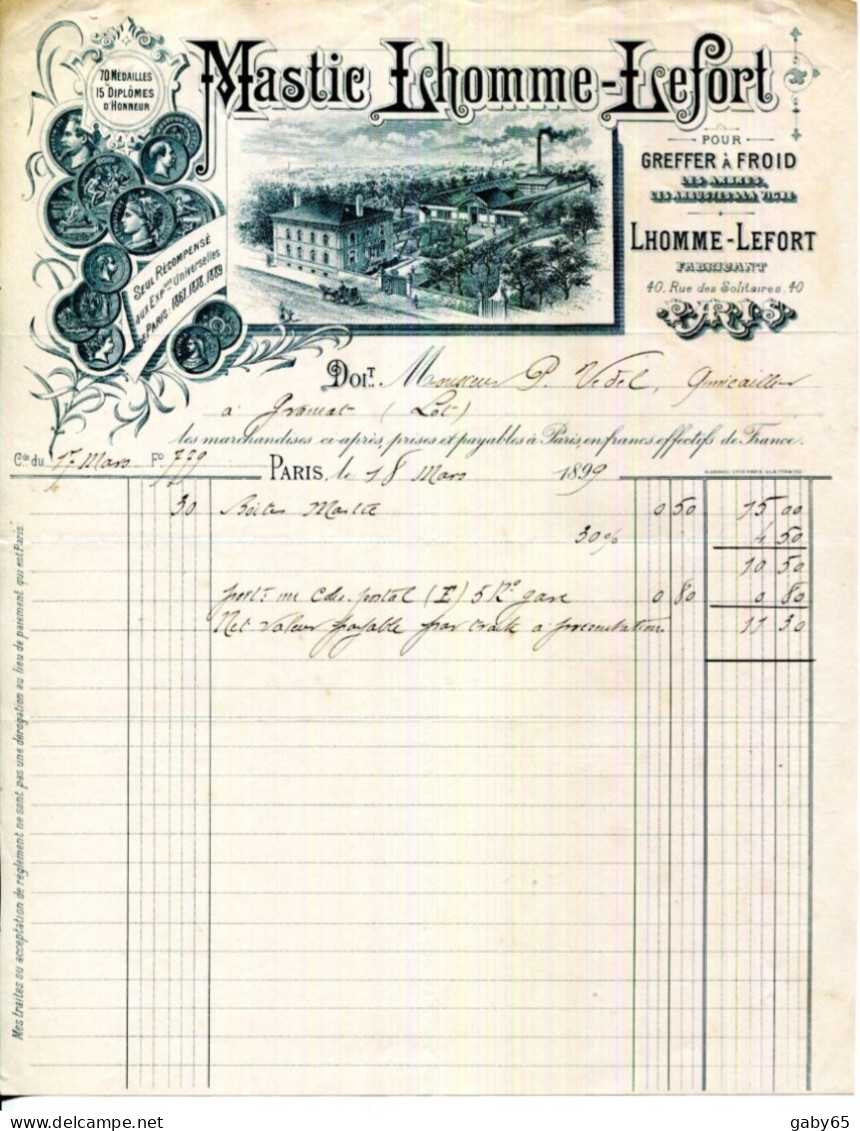 70 MÉDAILLES
15 DIPLÔMES
D'HONNEUR
Mastic Lhomme-Lefort
POUR
GREFFER À FROID
LES ARBRES,
LES ARBUSTES & LA VIGNE
LHOMME-LEFORT
FABRICANT
40, Rue des Solitaires, 40
PARIS
SEUL RÉCOMPENSÉ
aux Expons Universelles
de PARIS: 1867, 1878, 1889
DOIT Monsieur P. Vedel, Quincailler
à Gramat (Lot)
les marchandises ci-après, prises et payables à Paris, en francs effectifs de France.
Cde du 17 Mars Fo 729
PARIS, le 18 Mars 1899
30 Boites Mastic 0 50 15 00
30% 4 50
10 50
port un colis postal (E) 5 Ko gare 0 80 0 80
Net Valeur payable par traite à présentation. 11 30
Mes traites ou acceptation de règlement ne sont pas une dérogation au lieu de paiement qui est Paris
gaby65